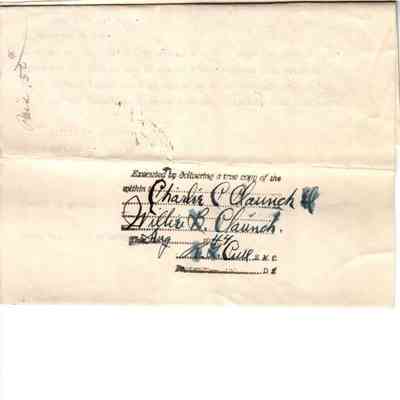 Paid 50
Executed by delivering a true copy of the
within to Charlie C Claunch &
Willie B. Claunch.
Aug 44
Curl S. K. C.
D. S.